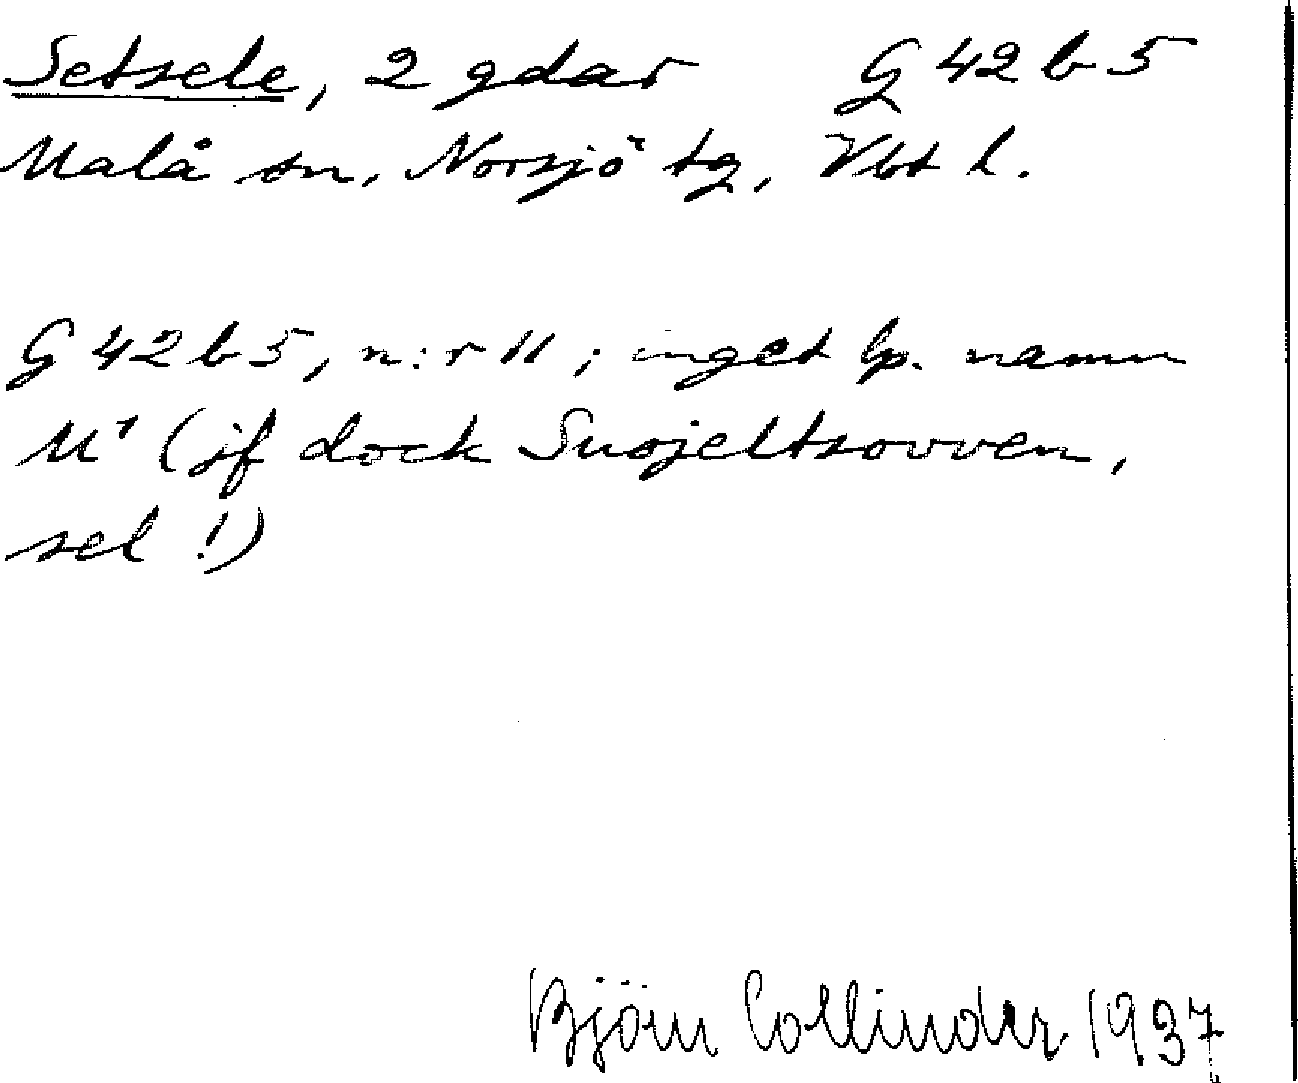 Setsele, 2 gdar G 42 b 5
Malå sn, Norsjö tg, Vbt l.
G 42 b 5, n:r 11; inget lp. namn
M¹ (jf dock Suojeltsovven,
sel!)
Björn Collinder 1937